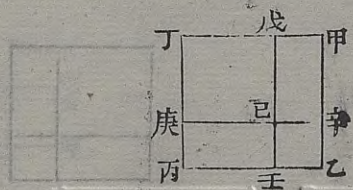 丁 戊 甲
庚 已 辛
丙 壬 乙